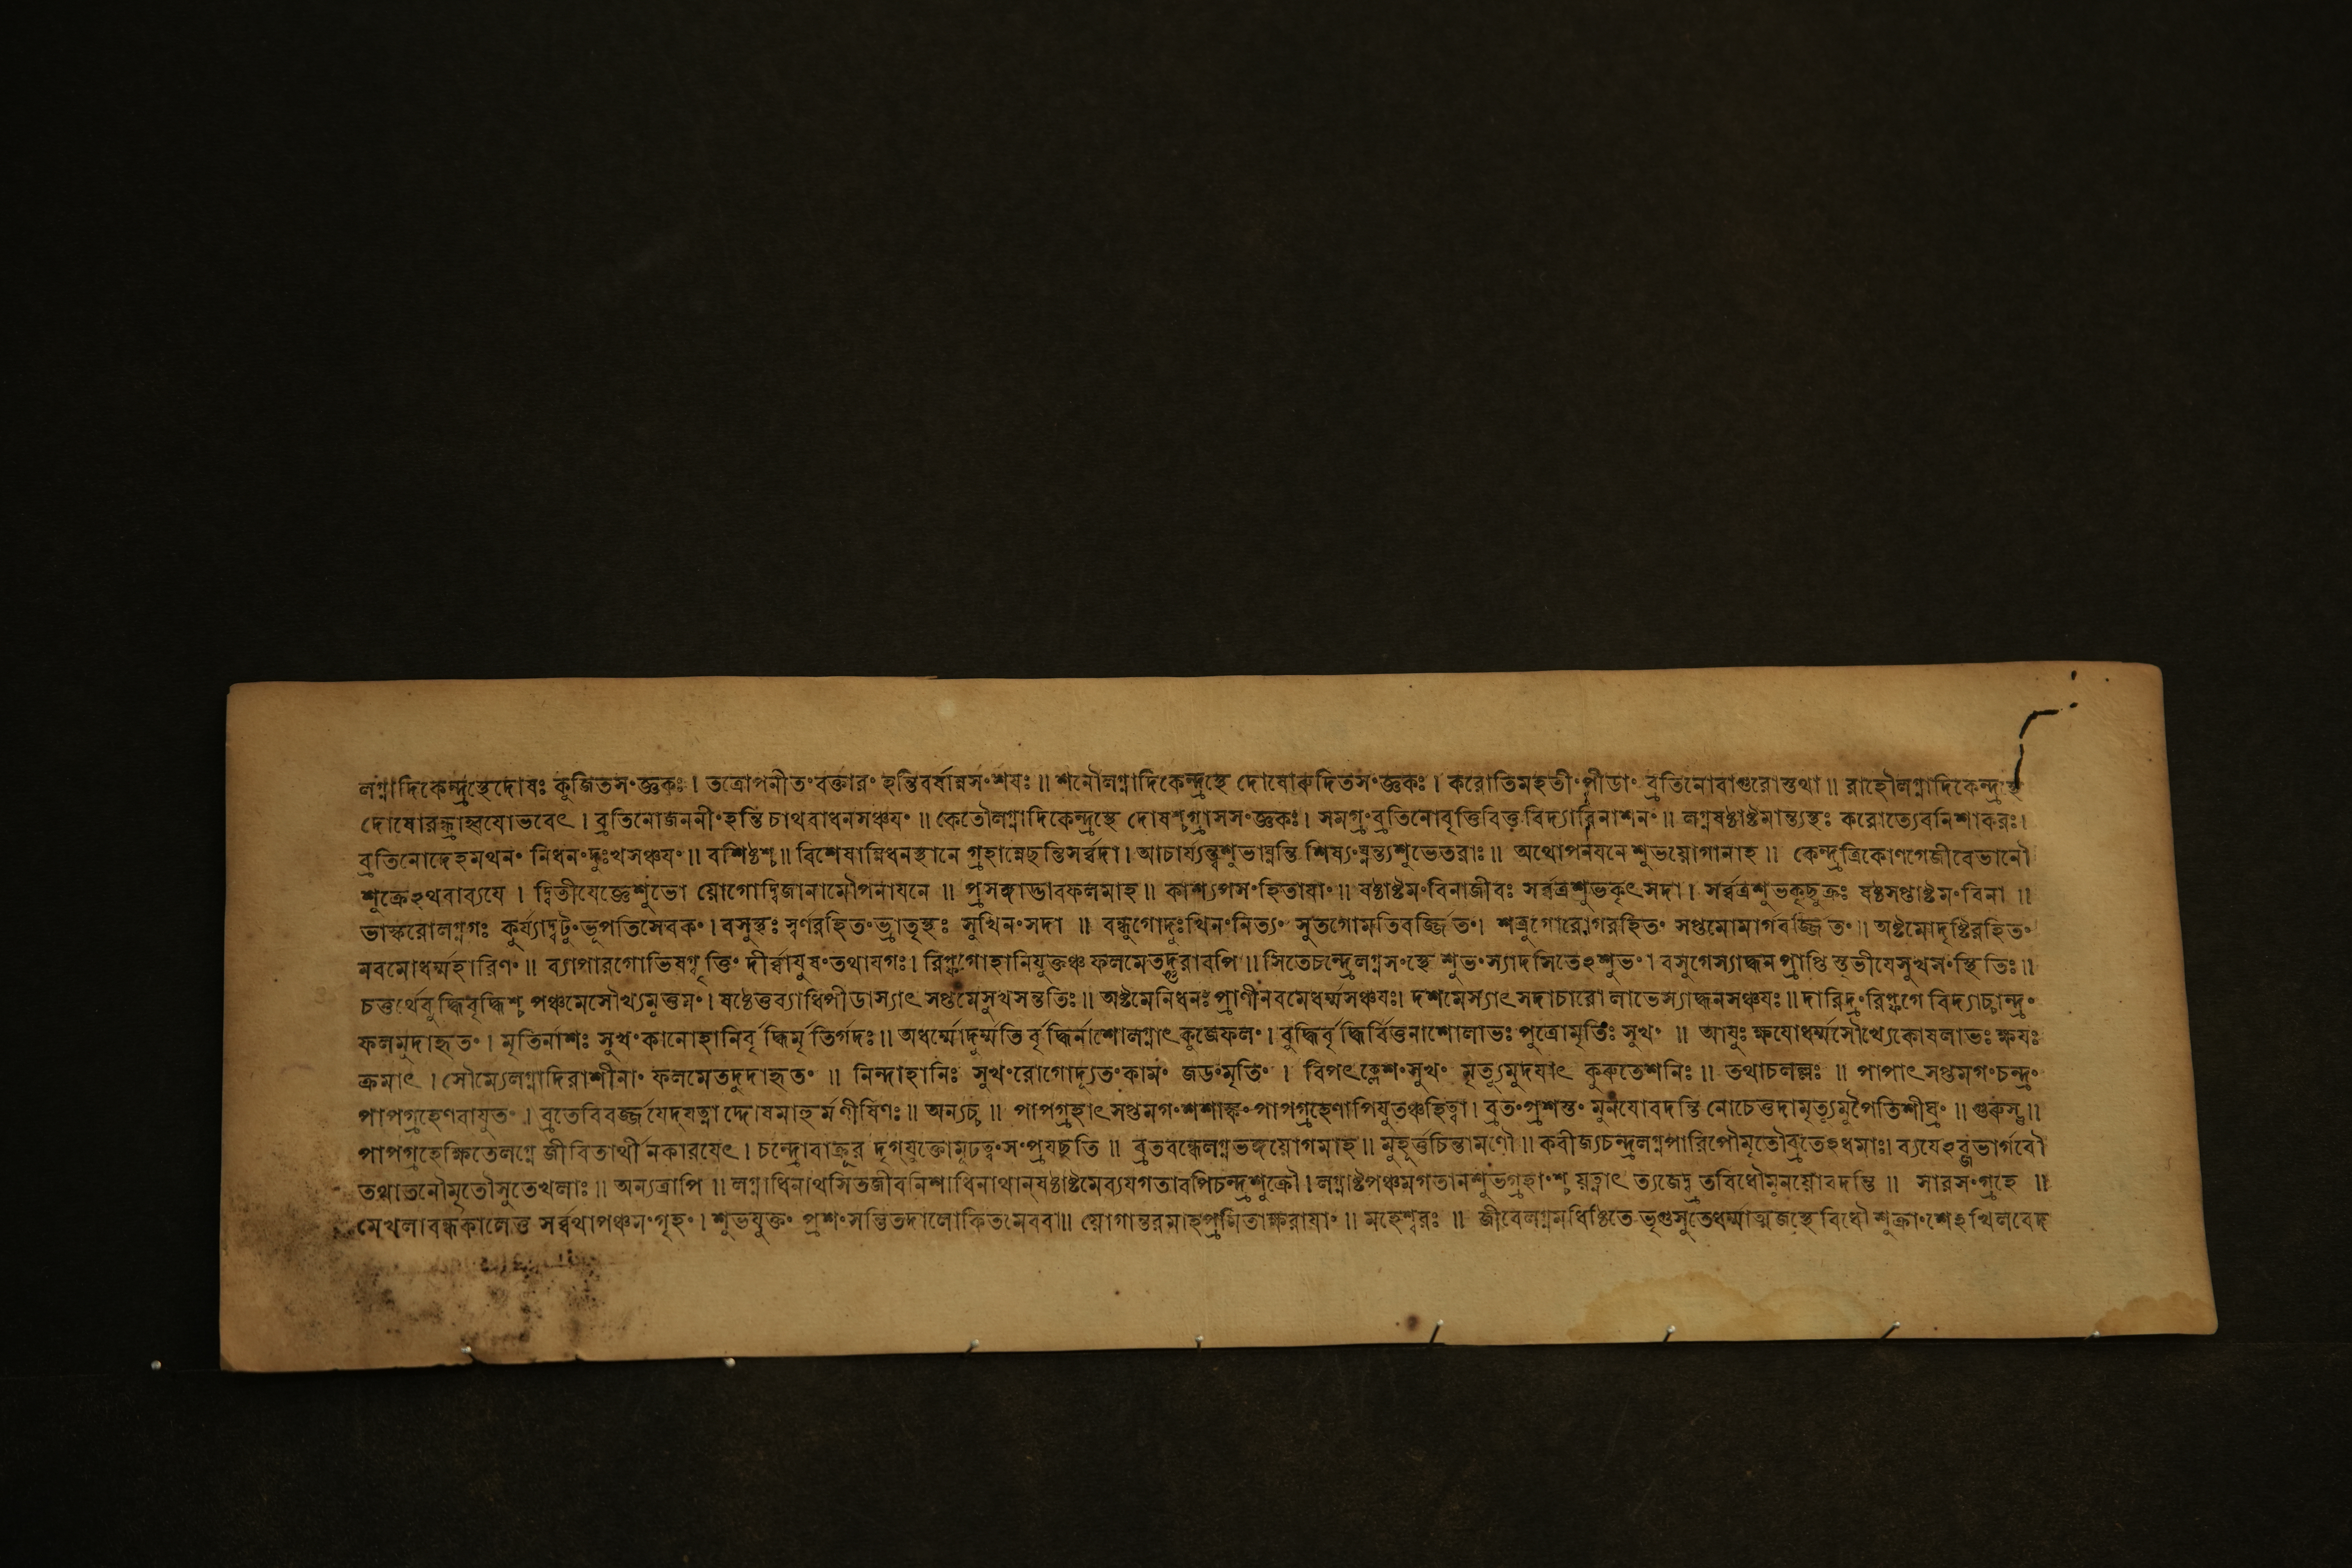 লগ্নাদিকেন্দ্রস্থেদোষঃ কূজিতসংজ্ঞকঃ। তত্রোপনীতংবক্তারং হন্তিবর্ষান্নসংশযঃ॥ শনৌলগ্নাদিকেন্দ্রস্থে দোষোরুদিতসংজ্ঞকঃ। করোতিমহতীংপীডাং ব্রতিনোবাগুরোস্তথা॥ রাহৌলগ্নাদিকেন্দ্রস্থে
দোষোরন্ধ্রাহ্বযোভবেৎ। ব্রতিনোজননীংহন্তি চাথবাধনসঞ্চযং॥ কেতৌলগ্নাদিকেন্দ্রস্থে দোষশ্গ্রাসসংজ্ঞকঃ। সমগ্রংব্রতিনোবৃত্তিবিত্তবিদ্যাবিনাশনং॥ লগ্নষষ্ঠাষ্টমান্ত্যস্থঃ করোত্যেবনিশাকরঃ।
ব্রতিনোদেহমথনং নিধনংদুঃখসঞ্চযং॥ বশিষ্ঠশ্চ॥ বিশেষান্নিধনস্থানে গ্রহান্নেছন্তিসর্ব্বদা। আচার্য্যন্ত্বশুভাঘ্নন্তি শিষ্যংঘ্নন্ত্যশুভেতরাঃ॥ অথোপনযনে শুভয়োগানাহ॥ কেন্দ্রত্রিকোণগেজীবেভানৌ
শুক্রেঽথবাব্যযে। দ্বিতীযেজ্ঞেশুভো য়োগোদ্বিজানামৌপনাযনে॥ প্রসঙ্গাদ্ভাবফলমাহ॥ কাশ্যপসংহিতাযাং॥ ষষ্ঠাষ্টমংবিনাজীবঃ সর্ব্বত্রশুভকৃৎসদা। সর্ব্বত্রশুভকৃছুক্রঃ ষষ্ঠসপ্তাষ্টমংবিনা॥
ভাস্করোলগ্নগঃ কুর্য্যাদ্বটুংভূপতিসেবকং। বসুস্থঃ স্বর্ণরহিতংভ্রাতৃস্থঃ সুখিনংসদা॥ বন্ধুগোদুঃখিনংনিত্যং সুতগোমতিবর্জ্জিতং। শত্রুগোরোগরহিতং সপ্তমোমার্গবর্জ্জিতং॥ অষ্টমোদৃষ্টিরহিতং
নবমোধর্ম্মহারিণং॥ ব্যাপারগোভিষগ্বৃত্তিং দীর্ঘাযুষংতথাযগঃ। রিপ্ফগোহানিযুক্তঞ্চ ফলমেতদ্গুরাবপি॥ সিতেচন্দ্রেলগ্নসংস্থে শুভংস্যাদসিতেঽশুভং। বসুগেস্যাদ্ধনপ্রাপ্তি স্তৃতীযেসুখসংস্থিতিঃ॥
চতুর্থেবুদ্ধিবৃদ্ধিশ্চ পঞ্চমেসৌখ্যমুত্তমং। ষষ্ঠেত্তব্যাধিপীডাস্যাৎ সপ্তমেসুখসন্ততিঃ॥ অষ্টমেনিধনঃপ্রাণীনবমেধর্ম্মসঞ্চযঃ। দশমেস্যাৎ সদাচারোলাভেস্যাদ্ধনসঞ্চযঃ॥ দারিদ্রংরিপ্ফগে বিদ্যাচ্চান্দ্রং
ফলমুদাহৃতং। মৃতির্নাশঃ সুখংকানোহানিবৃদ্ধির্মৃত্তির্গদঃ॥ অধর্ম্মোদুর্ম্মতি র্বৃদ্ধির্নাশোলগ্নাৎ কুজেফলং। বুদ্ধির্বৃদ্ধির্বিত্তনাশোলাভঃ পুত্রোমৃতিঃ সুখং॥ আযুঃ ক্ষযোধর্ম্মসৌখ্যেকোষলাভঃ ক্ষযঃ
ক্রমাৎ। সৌম্যেলগ্নাদিরাশীনাং ফলমেতদুদাহৃতং॥ নিন্দাহানিঃ সুখংরোগোদ্যূতংকামং জডংমৃতিং। বিপৎক্লেশংসুখং মৃত্যুমুদযাৎ কুরুতেশনিঃ॥ তথাচলল্লঃ॥ পাপাৎ সপ্তমগংচন্দ্রং
পাপগ্রহেণবাযুতং। ব্রতেবিবর্জ্জযেদ্যত্না দ্দোষমাহুর্মণীষিণঃ॥ অন্যচ্চ॥ পাপগ্রহাৎ সপ্তমগংশশাঙ্কং পাপগ্রহেণাপিযুতঞ্চহিত্বা। ব্রতংপ্রশস্তং মুনযোবদন্তি নোচেত্তদামৃত্যুমুপৈতিশীঘ্রং॥ গুরুস্তু॥
পাপগ্রহেক্ষিতেলগ্নে জীবিতার্থী নকারযেৎ। চন্দ্রোবাক্রূর দৃগ্যুক্তোমূঢত্বংসংপ্রযছতি॥ ব্রতবন্ধেলগ্নভঙ্গয়োগমাহ॥ মুহূর্ত্তচিন্তামণৌ॥ কবীজ্যচন্দ্রলগ্নপারিপৌমৃতৌব্রতেঽধমাঃ। ব্যযেঽব্জভার্গবৌ
তথাতনৌমৃতৌসুতেখলাঃ॥ অন্যত্রাপি॥ লগ্নাধিনাথসিতজীবনিশাধিনাথান্ষষ্ঠাষ্টমেব্যযগতাবপিচন্দ্রশুক্রৌ। লগ্নাষ্টপঞ্চমগতানশুভগ্রহাংশ্চ য়ত্নাৎ ত্যজেদ্ব্রতবিধৌমুনয়োবদন্তি॥ সারসংগ্রহে॥
মেখলাবন্ধকালেত্ত সর্ব্বথাপঞ্চমংগৃহং। শুভযুক্তং প্রশংসন্তিতদালোকিতমেববা॥ য়োগান্তরমাহপ্রমিতাক্ষরাযাং॥ মহেশ্বরঃ॥ জীবেলগ্নমধিষ্ঠিতে ভৃগুসুতেধর্ম্মাত্মজস্থে বিধৌ শুক্রাংশেঽখিলবেদ